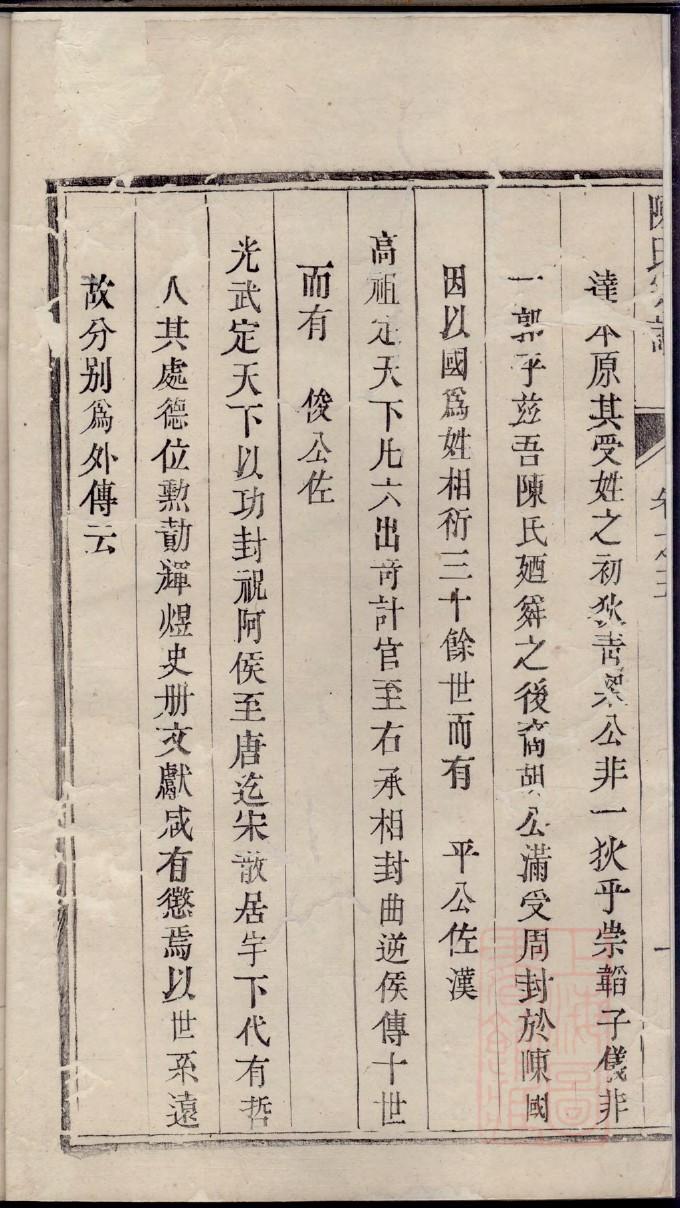 陳氏宗譜 卷之五 一
達本原其受姓之初狄青梁公非一狄乎崇韜子儀非
一郭乎兹吾陳氏廼舜之後裔胡公滿受周封於陳國
因以國爲姓相衍三十餘世而有 平公佐漢
高祖定天下凡六出奇計官至右丞相封曲逆侯傳十世
而有 俊公佐
光武定天下以功封祝阿侯至唐迄宋散居宇下代有哲
人其處德位勲勣輝煜史册文獻咸有懲焉以世系遠
故分别爲外傳云